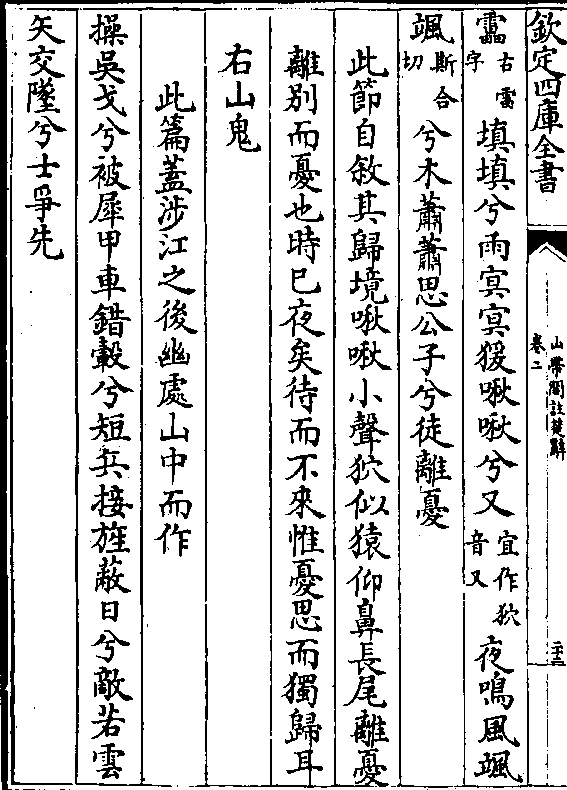 欽定四庫全書
山帶閣註楚辭
卷二
二十三
靁古雷字填填兮雨冥冥猨啾啾兮又宜作狖音又夜鳴風颯
颯斯合切兮木蕭蕭思公子兮徒離憂
此節自敘其歸境啾啾小聲狖似猿仰鼻長尾離憂
離别而憂也時已夜矣待而不來惟憂思而獨歸耳
右山鬼
此篇蓋涉江之後幽處山中而作
操吳戈兮被犀甲車錯轂兮短兵接旌蔽日兮敵若雲
矢交墜兮士爭先